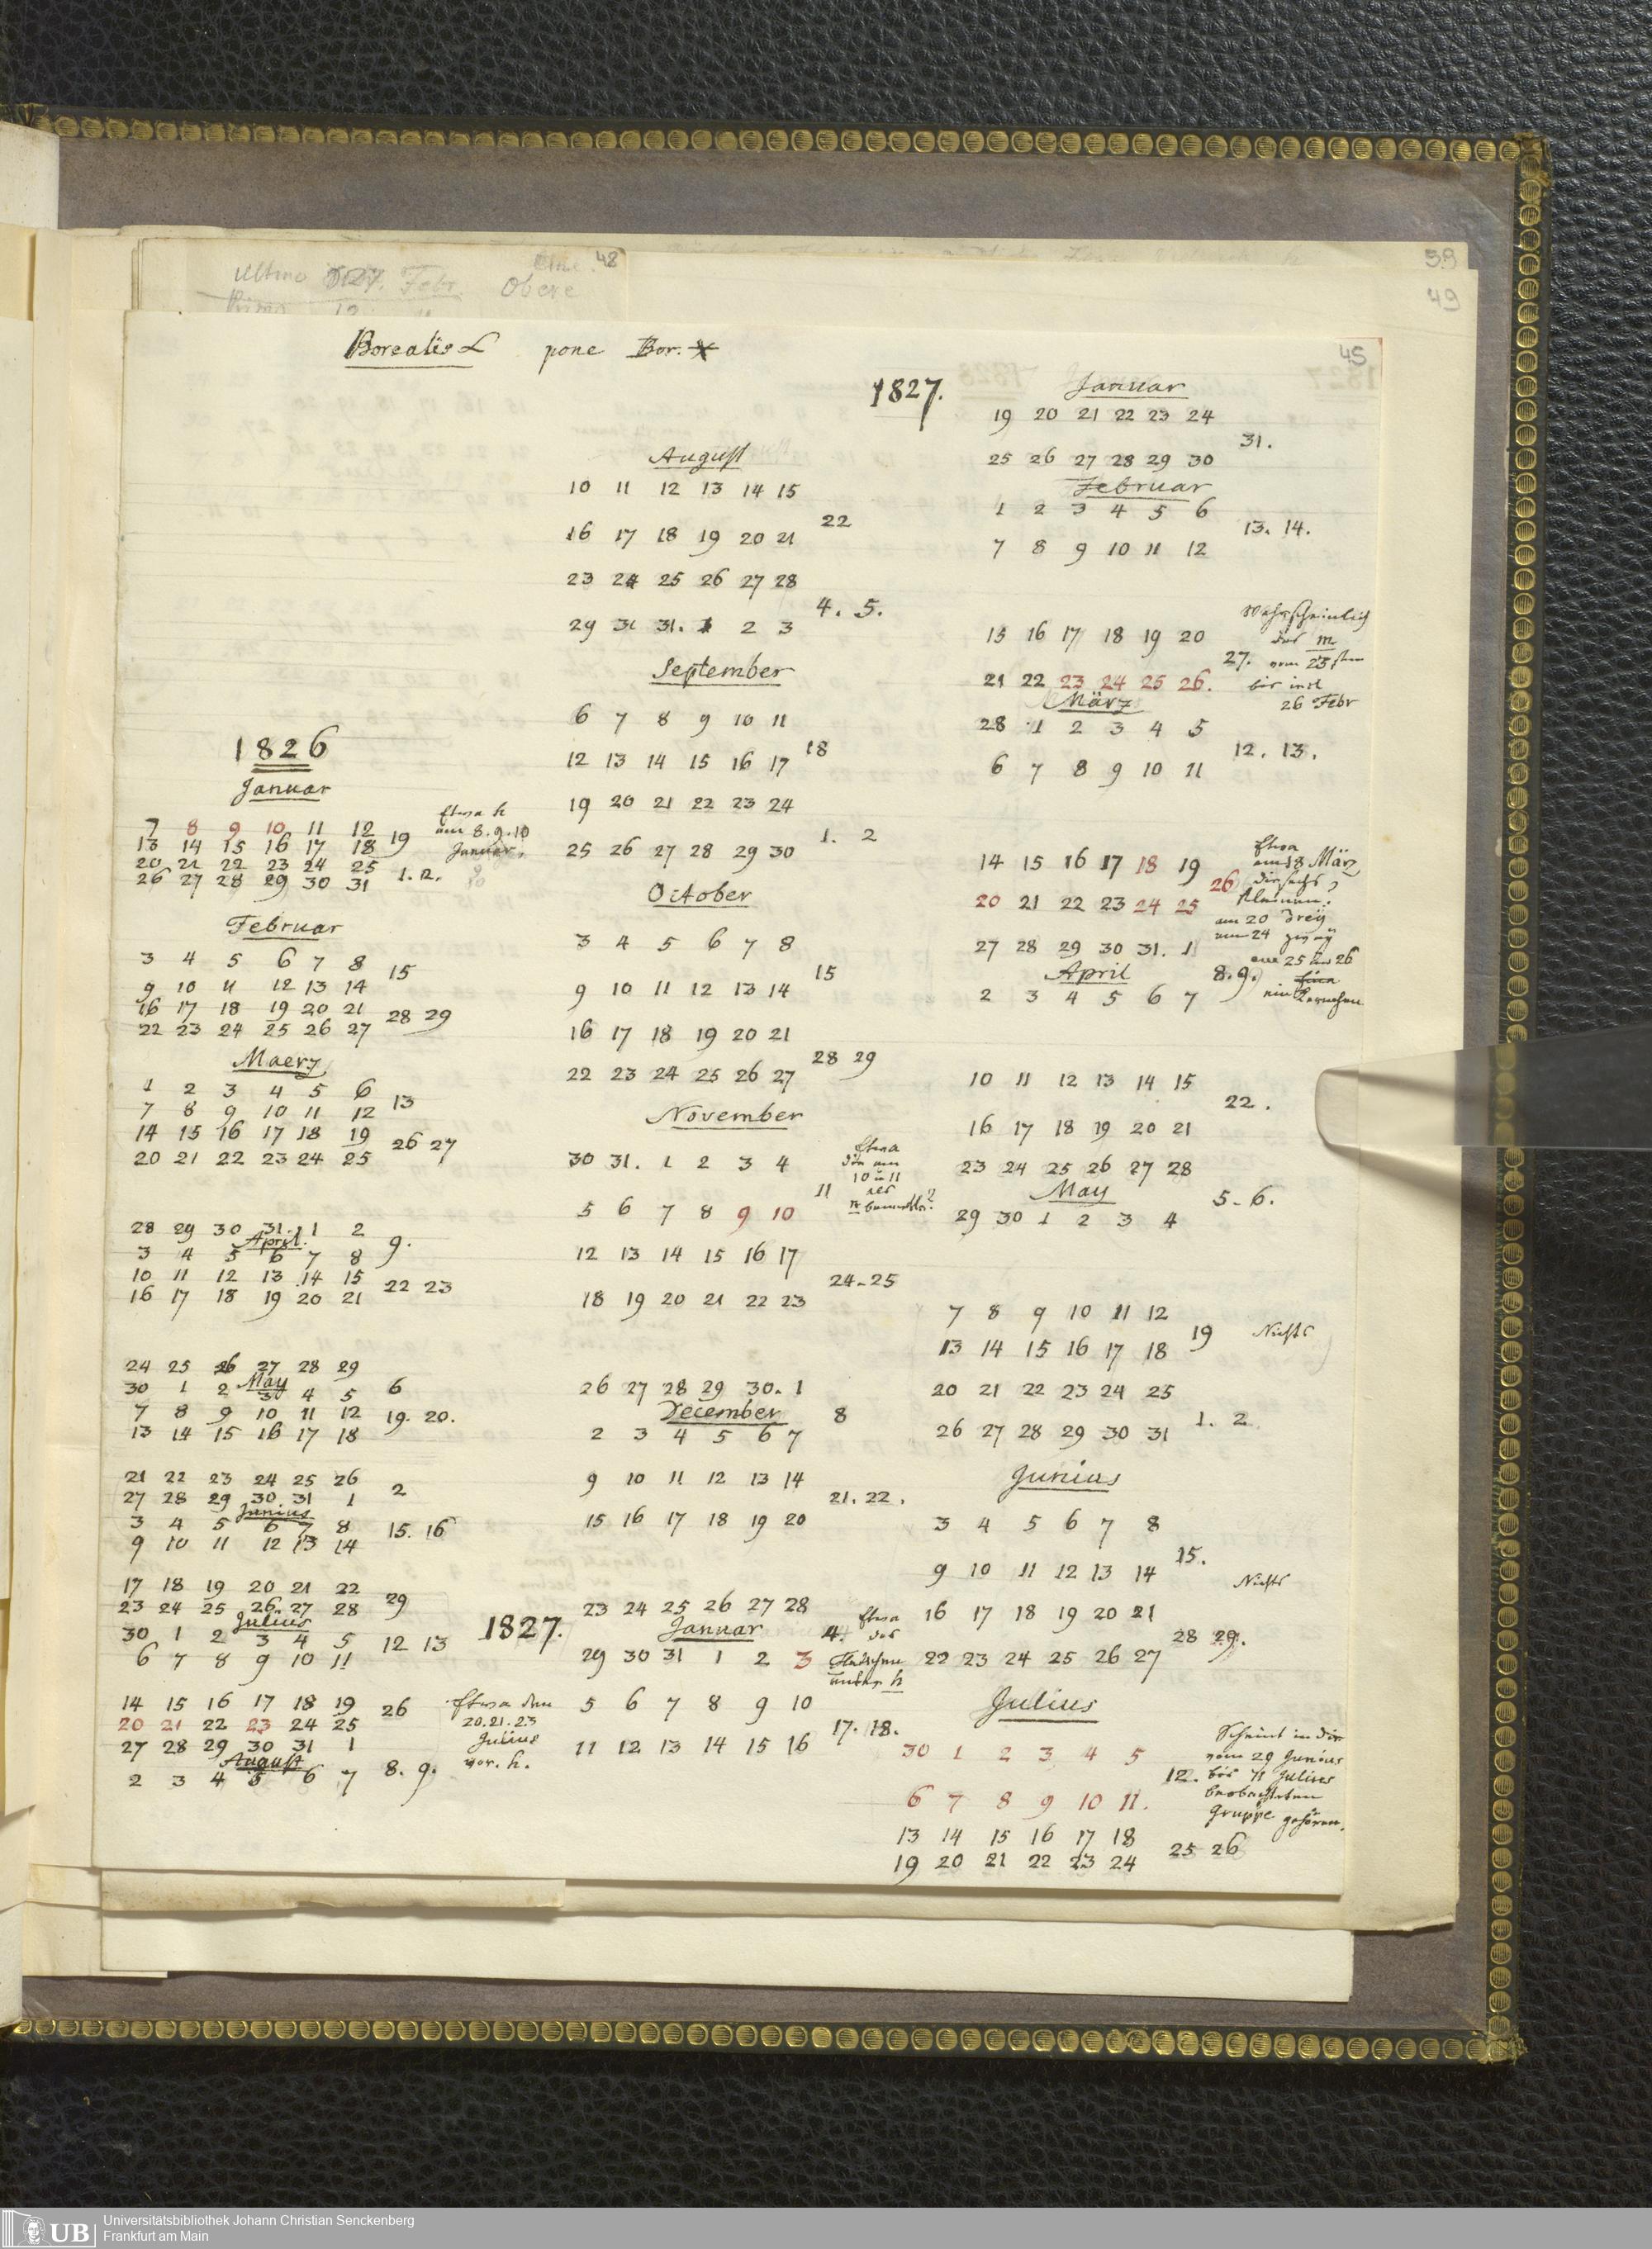 48
Ultimo Febr. Obere
39
49
45
Borealis L pone Bor. X
1826
Januar
7 8 9 10 11 12
13 14 15 16 17 18 19
20 21 22 23 24 25
26 27 28 29 30 31 1. 2.
Etwa h
am 8. 9. 10
Januar,
Februar
3 4 5 6 7 8
15
9 10 11 12 13 14
16 17 18 19 20 21
28 29
22 23 24 25 26 27
Maerz
1 2 3 4 5 6
13
7 8 9 10 11 12
14 15 16 17 18 19
26 27
20 21 22 23 24 25
28 29 30 31. 1 2
April.
9.
3 4 5 6 7 8
10 11 12 13 14 15
22 23
16 17 18 19 20 21
24 25 26 27 28 29
May
30 1 2 3 4 5 6
7 8 9 10 11 12
19. 20.
13 14 15 16 17 18
21 22 23 24 25 26
2
27 28 29 30 31 1
Junius
3 4 5 6 7 8
15. 16
9 10 11 12 13 14
17 18 19 20 21 22
29
23 24 25 26 27 28
Julius
30 1 2 3 4 5
12 13
6 7 8 9 10 11
14 15 16 17 18 19
26
20 21 22 23 24 25
27 28 29 30 31 1
August
8. 9.
2 3 4 5 6 7
Etwa den
20. 21. 23
Julius
vor. h.
August
10 11 12 13 14 15
22
16 17 18 19 20 21
23 24 25 26 27 28
4. 5.
29 30 31. 1 2 3
September
6 7 8 9 10 11
18
12 13 14 15 16 17
19 20 21 22 23 24
1. 2
25 26 27 28 29 30
October
3 4 5 6 7 8
15
9 10 11 12 13 14
16 17 18 19 20 21
28 29
22 23 24 25 26 27
November
30 31. 1 2 3 4
11
5 6 7 8 9 10
Etwa
die am
10 u 11
12 13 14 15 16 17
24-25
18 19 20 21 22 23
26 27 28 29 30. 1
December
8
2 3 4 5 6 7
9 10 11 12 13 14
21. 22.
15 16 17 18 19 20
1827.
23 24 25 26 27 28
Januar
4.
29 30 31 1 2 3
Etwa
das
unter h
5 6 7 8 9 10
17. 18.
11 12 13 14 15 16
1827.
Januar
19 20 21 22 23 24
31.
25 26 27 28 29 30
Februar
1 2 3 4 5 6
13. 14.
7 8 9 10 11 12
15 16 17 18 19 20
27.
21 22 23 24 25 26.
Wahrscheinlich
das m
vom 23sten
bis incl
26 Febr
März
28 1 2 3 4 5
12. 13.
6 7 8 9 10 11
14 15 16 17 18 19
26
20 21 22 23 24 25
Etwa
am 18 März
die sechs
kleinen.
am 20 drey
am 24 zwey
am 25 und 26
ein
27 28 29 30 31. 1
April
8. 9.
2 3 4 5 6 7
10 11 12 13 14 15
22.
16 17 18 19 20 21
23 24 25 26 27 28
May
5-6.
29 30 1 2 3 4
7 8 9 10 11 12
19 Nichts
13 14 15 16 17 18
20 21 22 23 24 25
1. 2
26 27 28 29 30 31
Junius
3 4 5 6 7 8
15.
9 10 11 12 13 14
Nichts
16 17 18 19 20 21
28 29.
22 23 24 25 26 27
Julius
30 1 2 3 4 5
12.
6 7 8 9 10 11.
Scheint in die
vom 29 Junius
bis 11 Julius
beobachteten
Gruppe gehören.
13 14 15 16 17 18
25 26
19 20 21 22 23 24
UB
Universitätsbibliothek Johann Christian Senckenberg
Frankfurt am Main